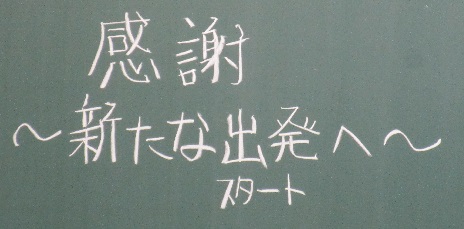 感謝
～新たな出発へ～
スタート